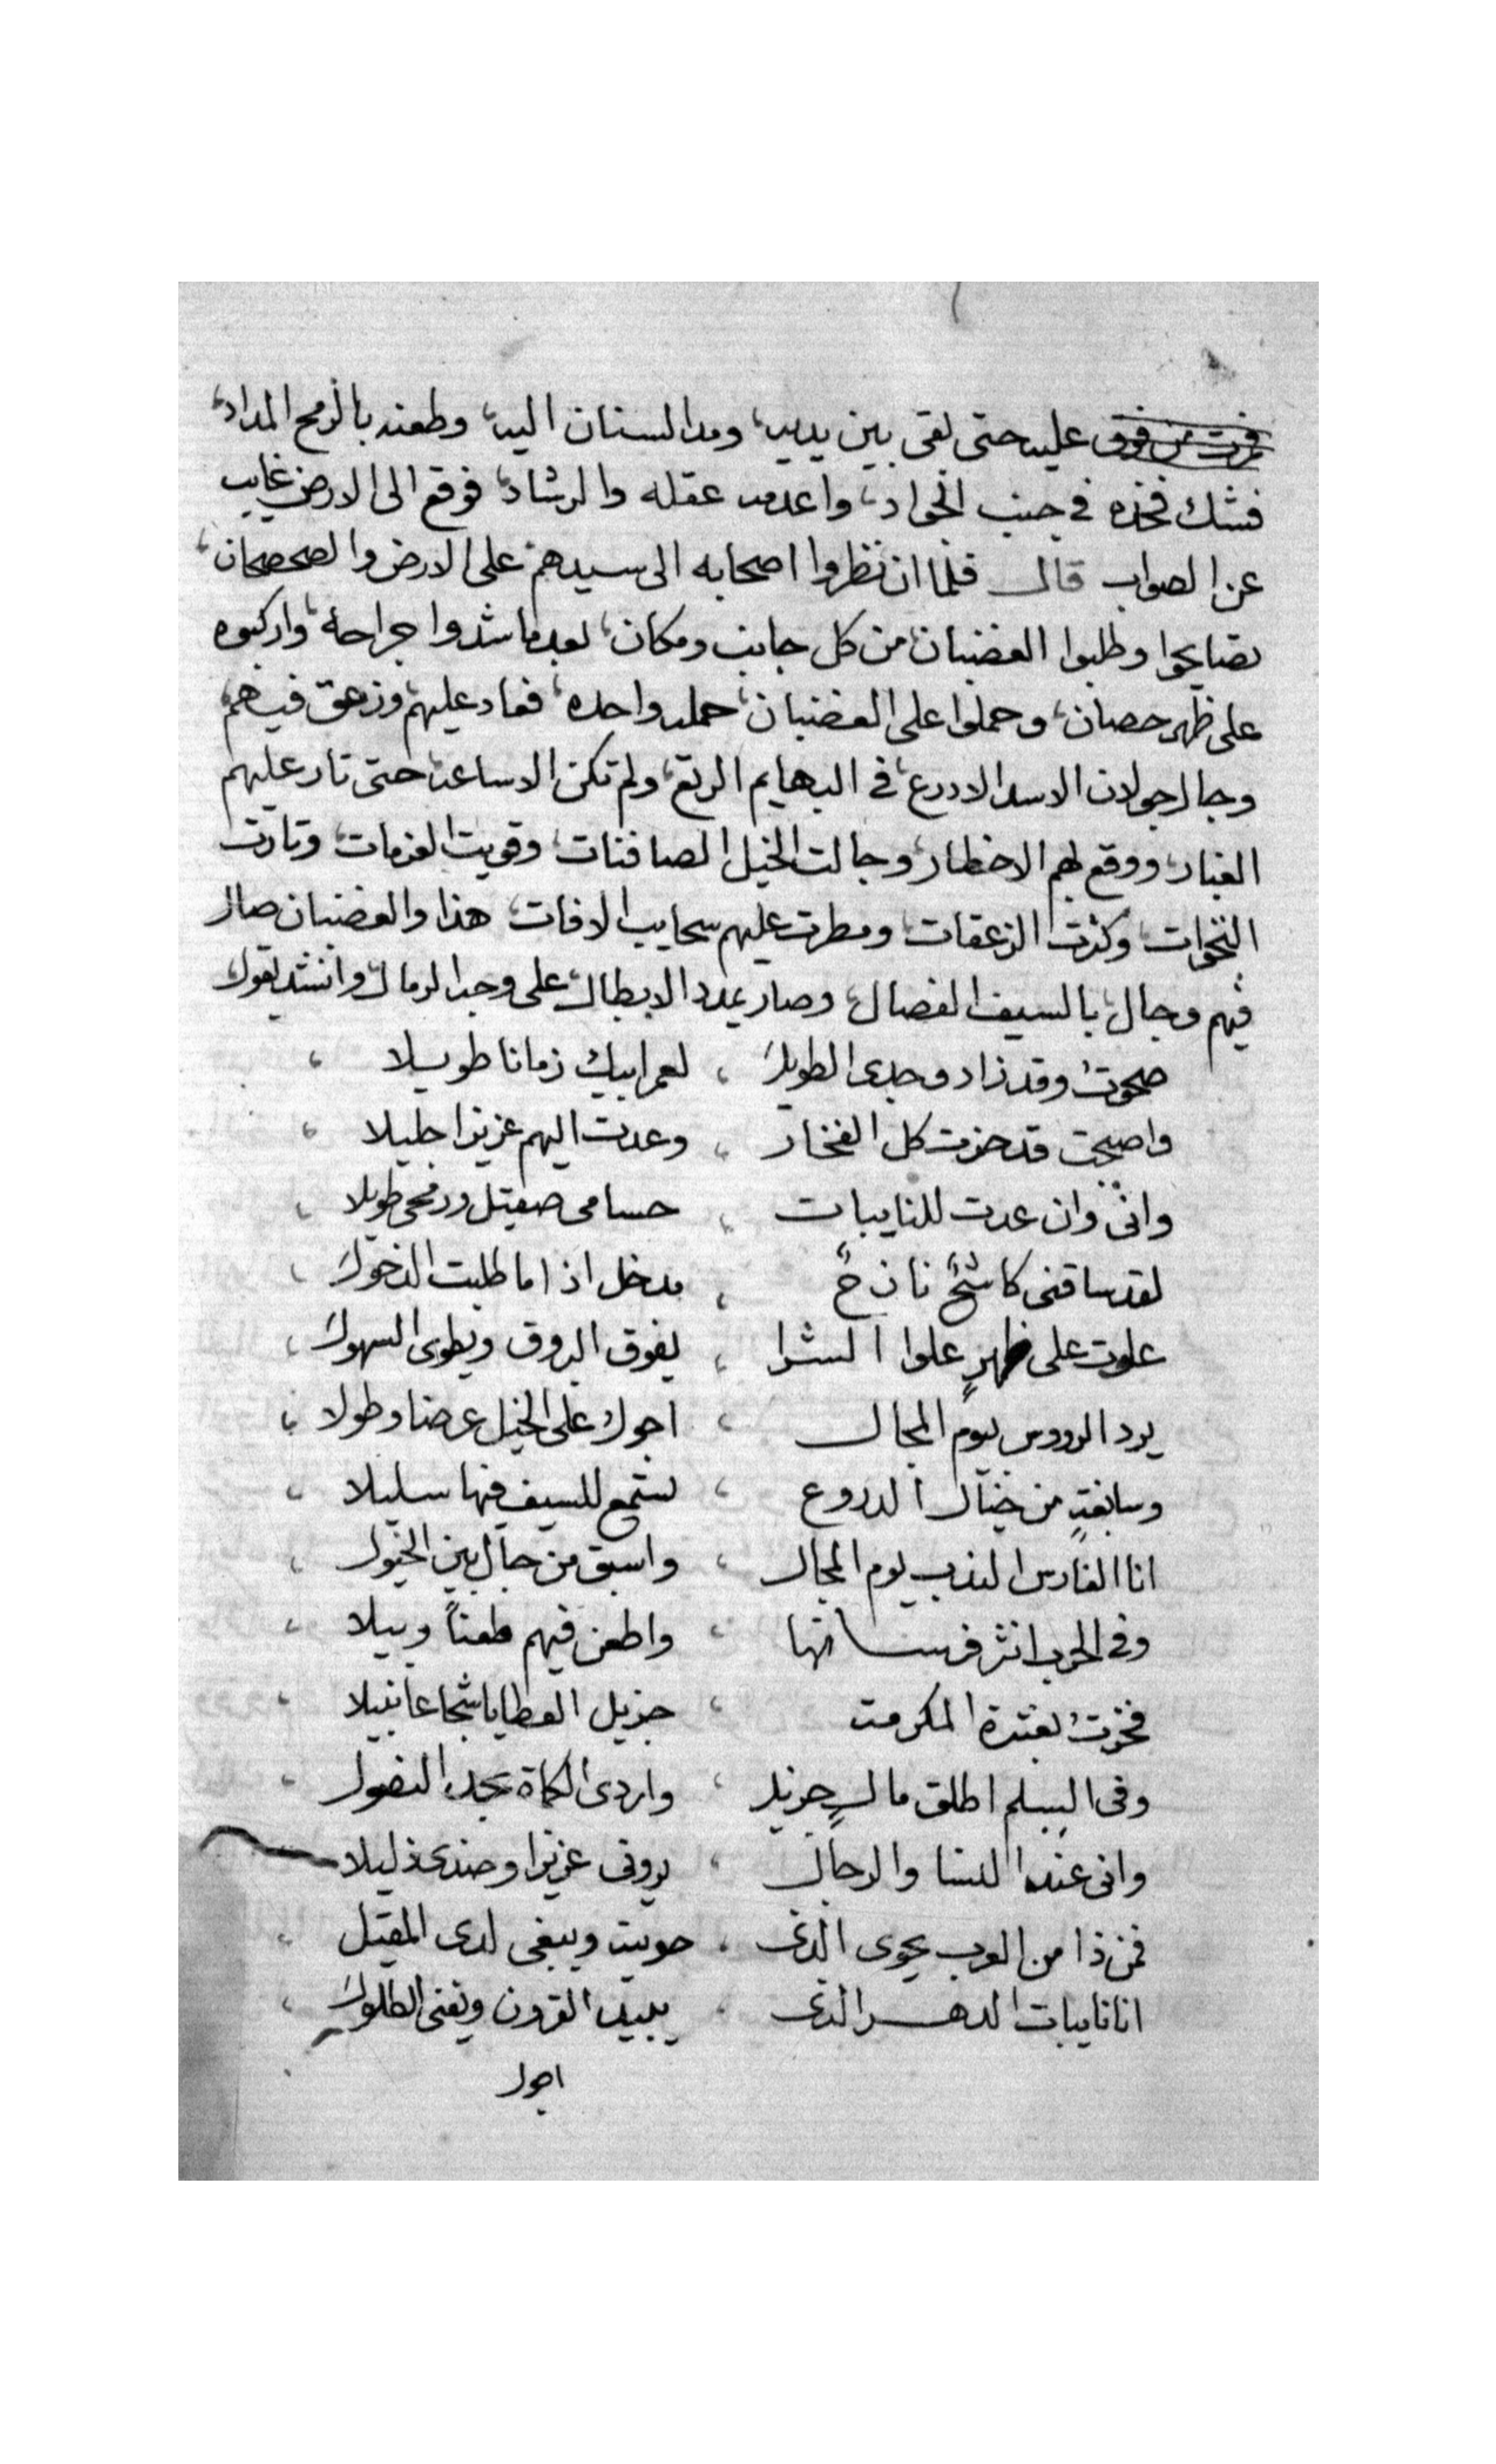 عليه حتى بقى بين يديه، ومد السنان اليه، وطعنه بالرمح المداد،
فشك فخذه في جنب الجواد، واعدمه عقله والرشاد، فوقع الى الارض غايب
عن الصواب قال فلما ان نظروا اصحابه الى سيدهم على الارض والصحصحان،
تصايحوا وطلبوا الغضبان، من كل جانب ومكان، بعدما شدوا جراحه، واركبوه
على ظهر حصان، وحملوا على الغضبان، حمله واحده، فعاد عليهم وزعق فيهم
وجال جولان الاسد الادرع، في البهايم الرتع، ولم تكن الا ساعه، حتى تار عليهم
الغبار، ووقع لهم الاخطار، وجالت الخيل الصافنات، وقويت العزمات، وتارت
النخوات، وكثرت الزعقات، ومطرت عليهم سحايب الافات، هذا والغضبان صال
فيهم وجال، بالسيف الفصال، وصار يمدد الابطال، على وجه الرمال، وانشد يقول
صحوت وقد زاد وجدى الطويل ، لعمر ابيك زمانا طويلا ،
واصبحت قد حزت كل الفخار ، وعدت اليهم عزيزا جليلا ،
وانى وان عدت للنايبات ، حسامى صقيل ورمحى طويلا ،
لقد ساقنى كاشح نازح ، مدخل اذا ما طلبت الدخول ،
علوت على ظهر علوا الشرا ، يفوق البروق ويطوى السهول ،
يرد الرووس بيوم المجال ، اجول على الخيل عرضا وطولا ،
وسابغة من خيال الدروع ، لستمع للسيف فيها سليلا ،
انا الفارس الندب يوم المجال ، واسبق من جال بين الخيول ،
وفى الحرب انثر فرسانها ، واطعن فيهم طعنا وبيلا ،
فخرت بعنترة المكرمت ، جزيل العطايا شجاعا نبيلا ،
وفى السلم اطلق مال جزيل ، واردى الكماة بحد النصول ،
وانى عند النسا والرجال ، يرونى عزيزا وضدى ذليلا
فمن ذا من العرب يحوى الذى ، حويت ويبغى لدى المقيل ،
انا نايبات الدهر الذى ، يبيد القرون ويفنى الطلول ،
اجول